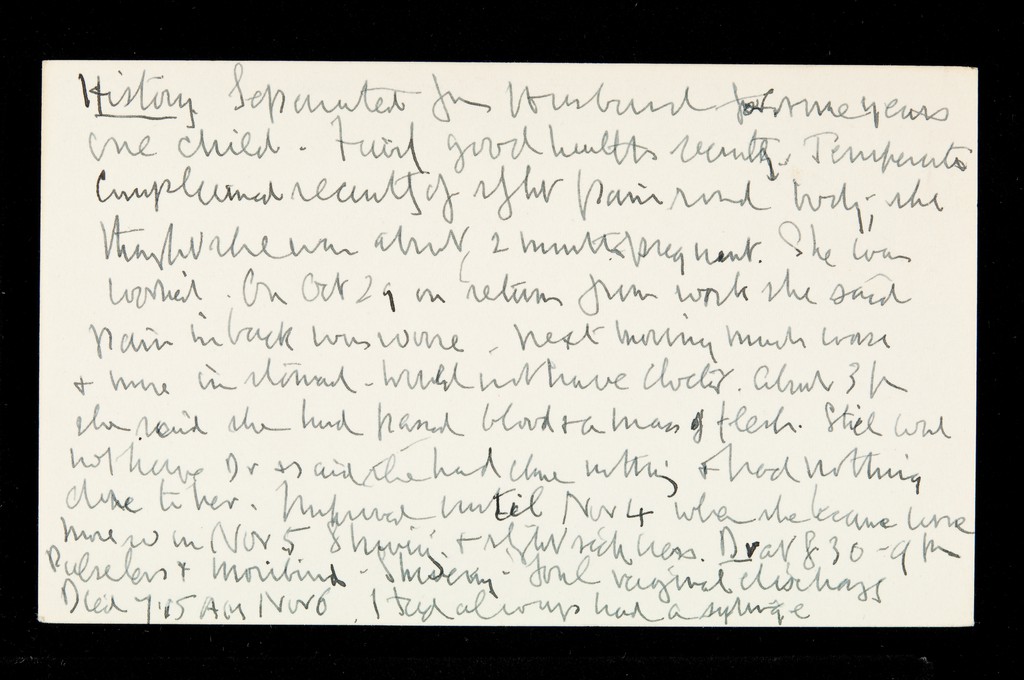 History Separated from Husband for some years
one child. Fairly good health recently. Temperate
Complained recently of slight pain round body, she
thought she was about 2 months pregnant. She was
worried. On Oct 29 on return from work she said
pain in back was worse. next morning much worse
& more in stomach - Would not have doctor. About 3 pm
she said she had passed blood & a mass of flesh. Still would
not have Dr & said she had done nothing & had nothing
done to her. Improved until Nov 4 when she became worse
more so on Nov 5 Shivering & slight sickness. Dr at 8 30 - 9 pm
Pulseless & moribund - Shivering - foul vaginal discharge
Died 7.15 AM Nov 6 had always had a syringe